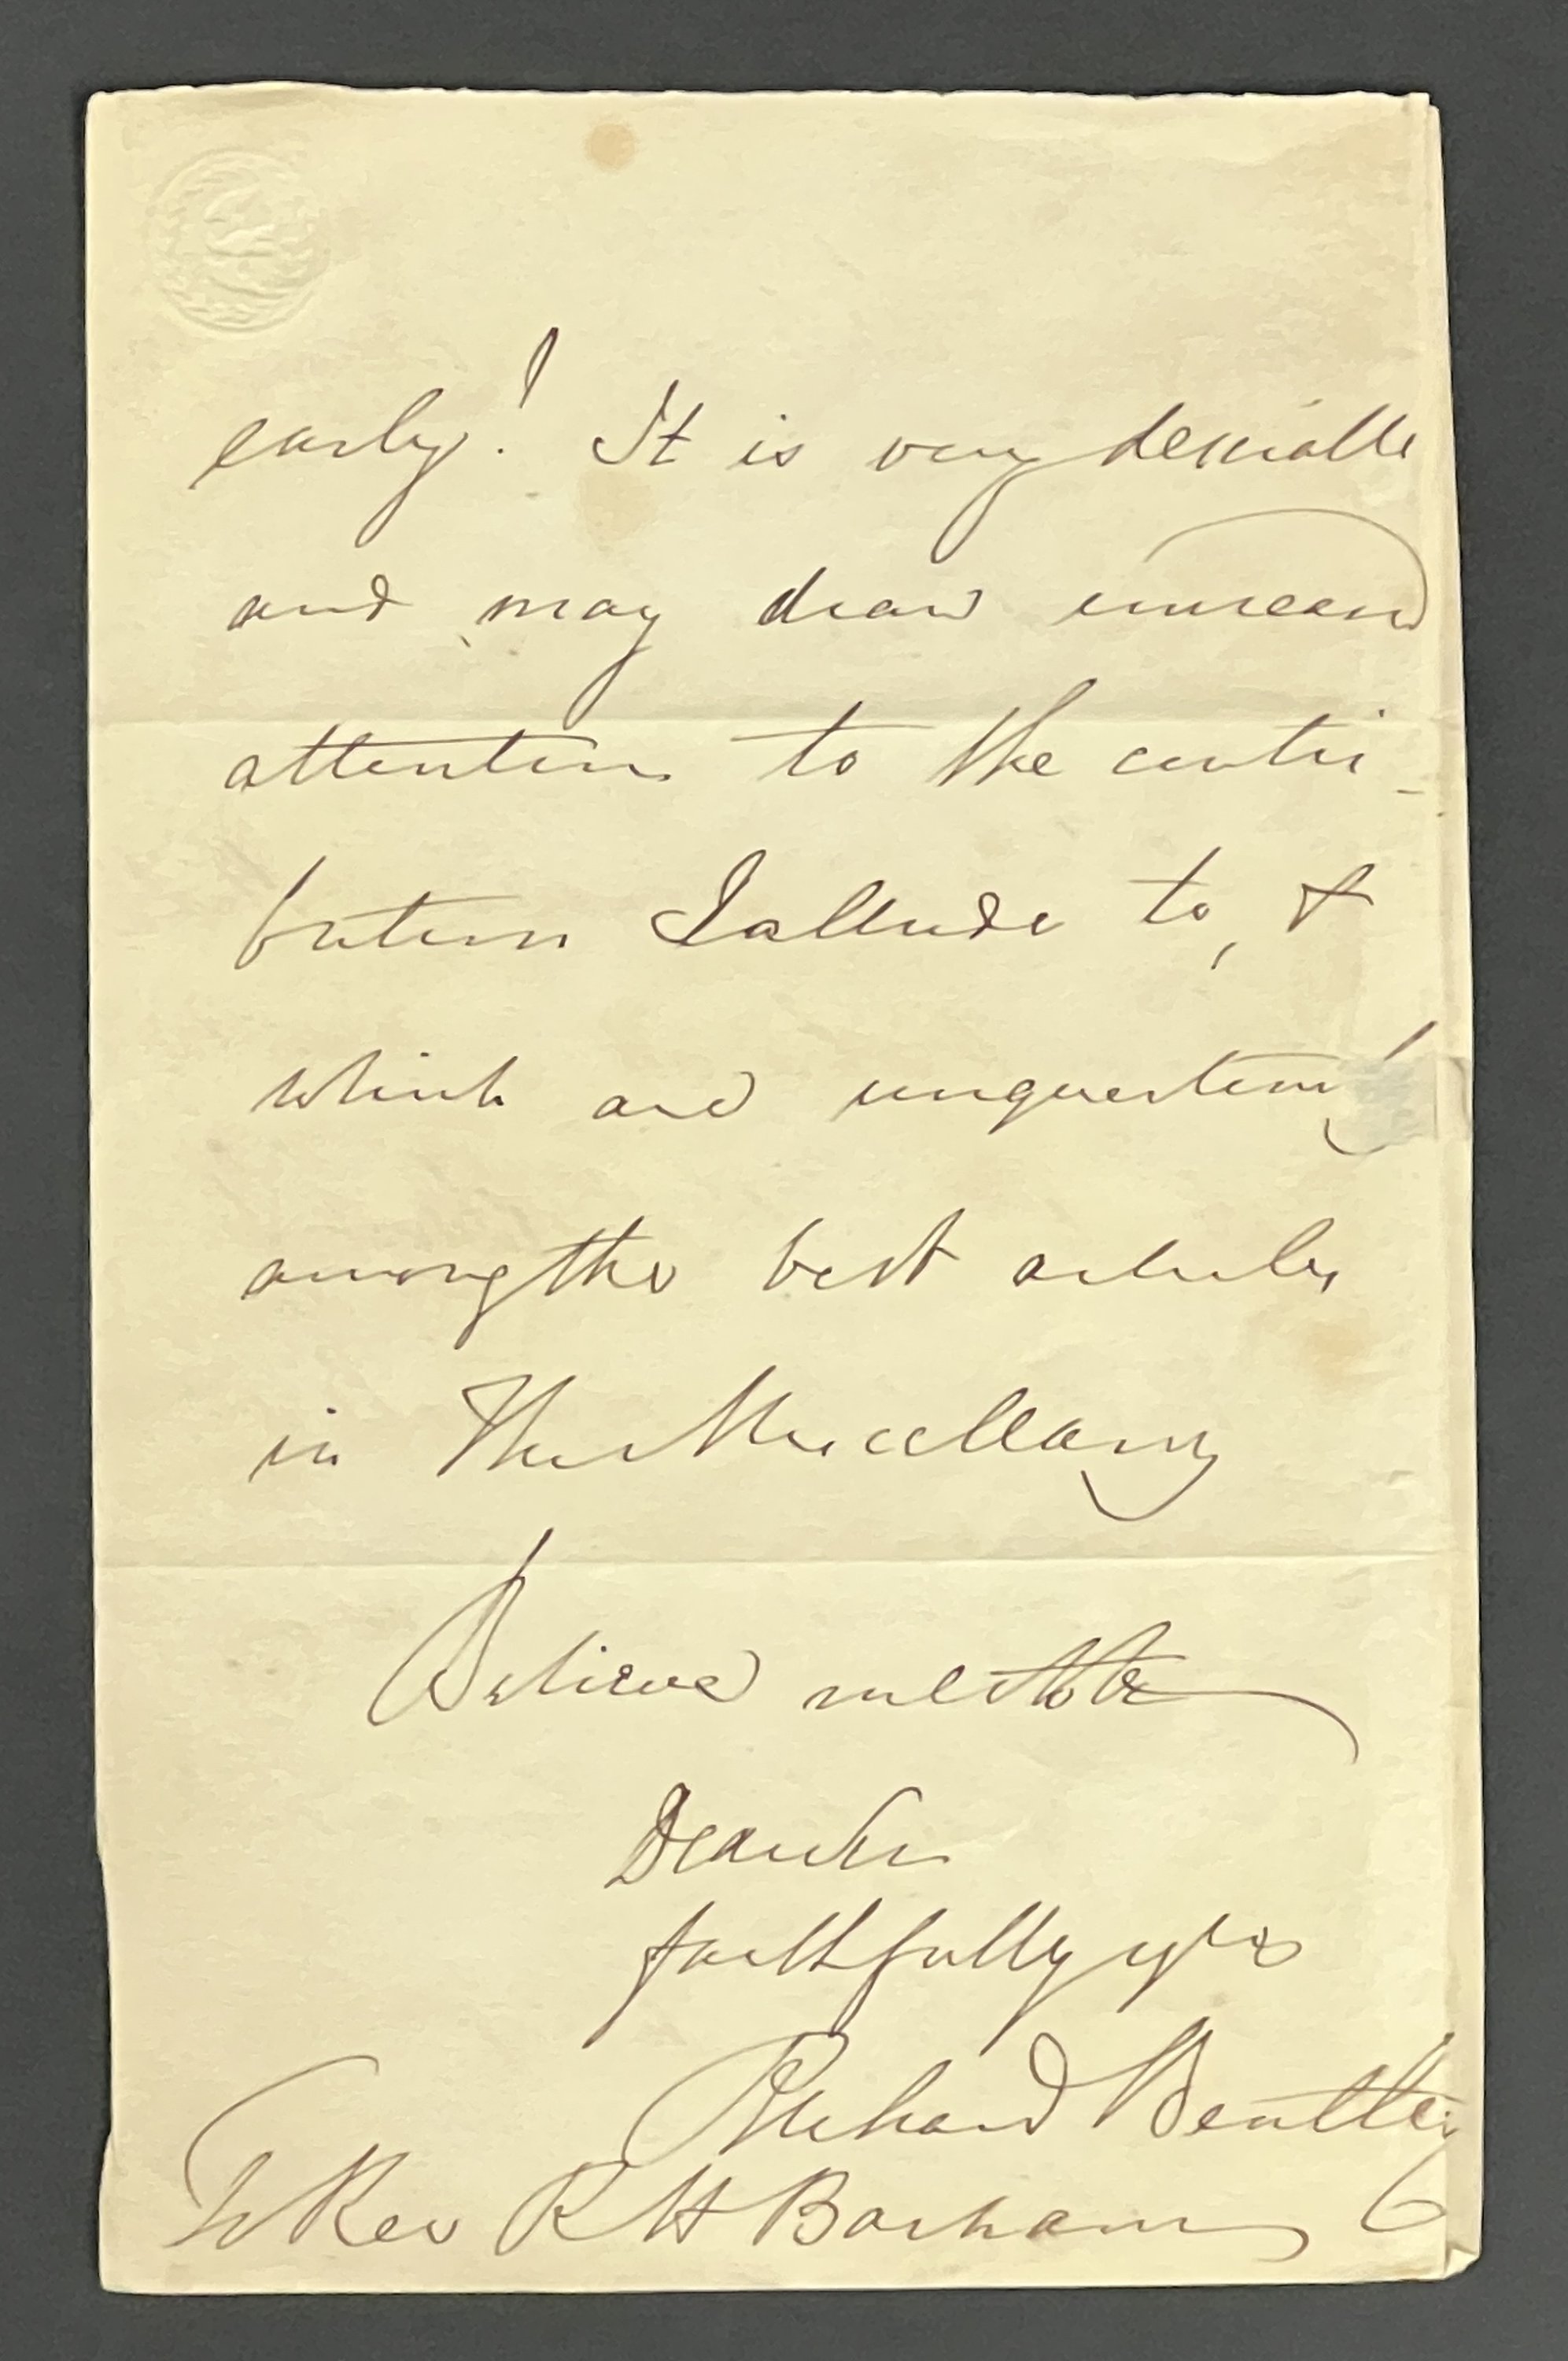 early! It is very desirable
and may draw increased
attention to the contri-
bution I allude to, &
which are unquestionably
among the best articles
in The Miscellany
Believe me to be
Dear Sir
faithfully yrs
Richard Bentley
To Rev R H Barham